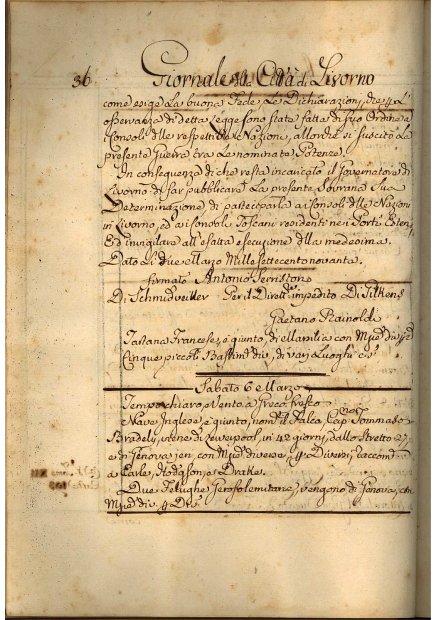 36 Giornale della Città di Livorno
come esige La buona Fede, Le Dichiarazioni, che p. L'
osservanza di detta Legge sono state fatte di suo Ordine a
i Consoli delle respettive Nazioni, allorché si suscitò La
presente Guerra tra Le nominate Potenze.
In consequenza di che resta incaricato il Governatore di
Livorno di far pubblicare La presente Sovrana Sua
Determinazione, di parteciparla a i Consoli delle Nazioni
in Livorno, ed a i Consoli Toscani residenti nei Porti Esteri,
Ed invigilare all' esatta esecuzione della medesima.
Dato Li due Marzo Mille settecento novanta.
firmato Antonio Serristori
Di Schmidveiller Per il Dirett.re impedito Di Silkens
Gaetano Rainoldi
Tartana Francese, è giunto, di Marsilia con
Cinque piccoli Bastim.ti div. di varj Luoghi
Sabato 6 Marzo
Tempo chiaro, e Vento a Greco fresco
Nave Inglese, è giunto, nom. il Falco Cap. Tommaso
Bradeli, viene di Liverpool, in 42 giorni, dallo Stretto 27,
e di Genova jeri, con diverse, p. Diversi, raccom.
a Earle, Hodgson, e Drake.
Due Felughe Gerosolimitane, vengono di Genova, con
div. p. Div.